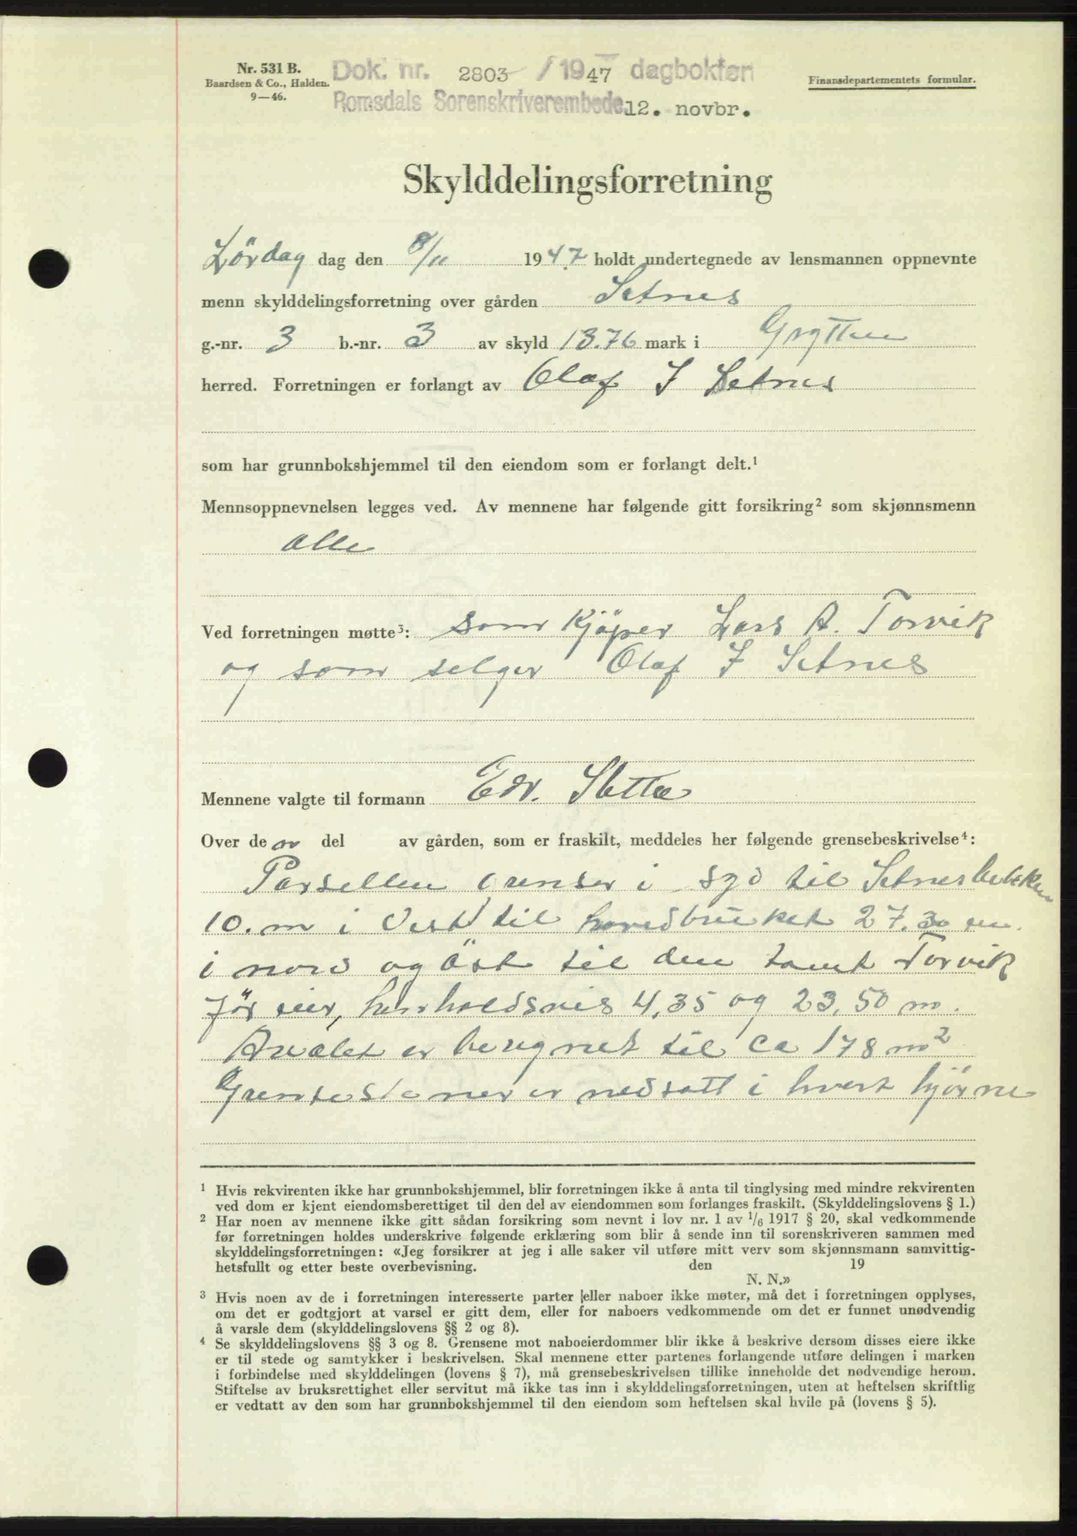 Nr. 531 B.
Baardsen & Co., Halden.
9—46.
Dok. nr. 2803 / 1947 dagboken
Romsdals Sorenskriverembede 12. novbr.
Finansdepartementets formular.
Skylddelingsforretning
Lördag dag den 8/11 1947 holdt undertegnede av lensmannen oppnevnte
menn skylddelingsforretning over gården Setnes
g.-nr. 3 b.-nr. 3 av skyld 13.76 mark i Grytten
herred. Forretningen er forlangt av Olaf J Setnes
som har grunnbokshjemmel til den eiendom som er forlangt delt.¹
Mennsoppnevnelsen legges ved. Av mennene har følgende gitt forsikring² som skjønnsmenn
alle
Ved forretningen møtte³: som Kjøper Lars A. Torvik
og som selger Olaf J Setnes
Mennene valgte til formann Edr. Slette
Over de av del av gården, som er fraskilt, meddeles her følgende grensebeskrivelse⁴:
Parsellen grenser i syd til Setnesbekken
10.m i Vest til hovedbruket 27.30 m.
i nord og öst til den tomt Torvik
før eier, henholdsvis 4,35 og 23,50 m.
Arealet er beregnet til ca 178 m²
Grensestener er nedsatt i hvert hjörne
¹ Hvis rekvirenten ikke har grunnbokshjemmel, blir forretningen ikke å anta til tinglysing med mindre rekvirenten
ved dom er kjent eiendomsberettiget til den del av eiendommen som forlanges fraskilt. (Skylddelingslovens § 1.)
² Har noen av mennene ikke gitt sådan forsikring som nevnt i lov nr. 1 av 1/6 1917 § 20, skal vedkommende
før forretningen holdes underskrive følgende erklæring som blir å sende inn til sorenskriveren sammen med
skylddelingsforretningen: «Jeg forsikrer at jeg i alle saker vil utføre mitt verv som skjønnsmann samvittig-
hetsfullt og etter beste overbevisning. den 19
N. N.»
³ Hvis noen av de i forretningen interesserte parter eller naboer ikke møter, må det i forretningen opplyses,
om det er godtgjort at varsel er gitt dem, eller for naboers vedkommende om det er funnet unødvendig
å varsle dem (skylddelingslovens §§ 2 og 8).
⁴ Se skylddelingslovens §§ 3 og 8. Grensene mot naboeierdommer blir ikke å beskrive dersom disses eiere ikke
er til stede og samtykker i beskrivelsen. Skal mennene etter partenes forlangende utføre delingen i marken
i forbindelse med skylddelingen (lovens § 7), må grensebeskrivelsen tillike inneholde det nødvendige herom.
Stiftelse av bruksrettighet eller servitut må ikke tas inn i skylddelingsforretningen, uten at heftelsen skriftlig
er vedtatt av den som har grunnbokshjemmel til den eiendom som heftelsen skal hvile på (lovens § 5).